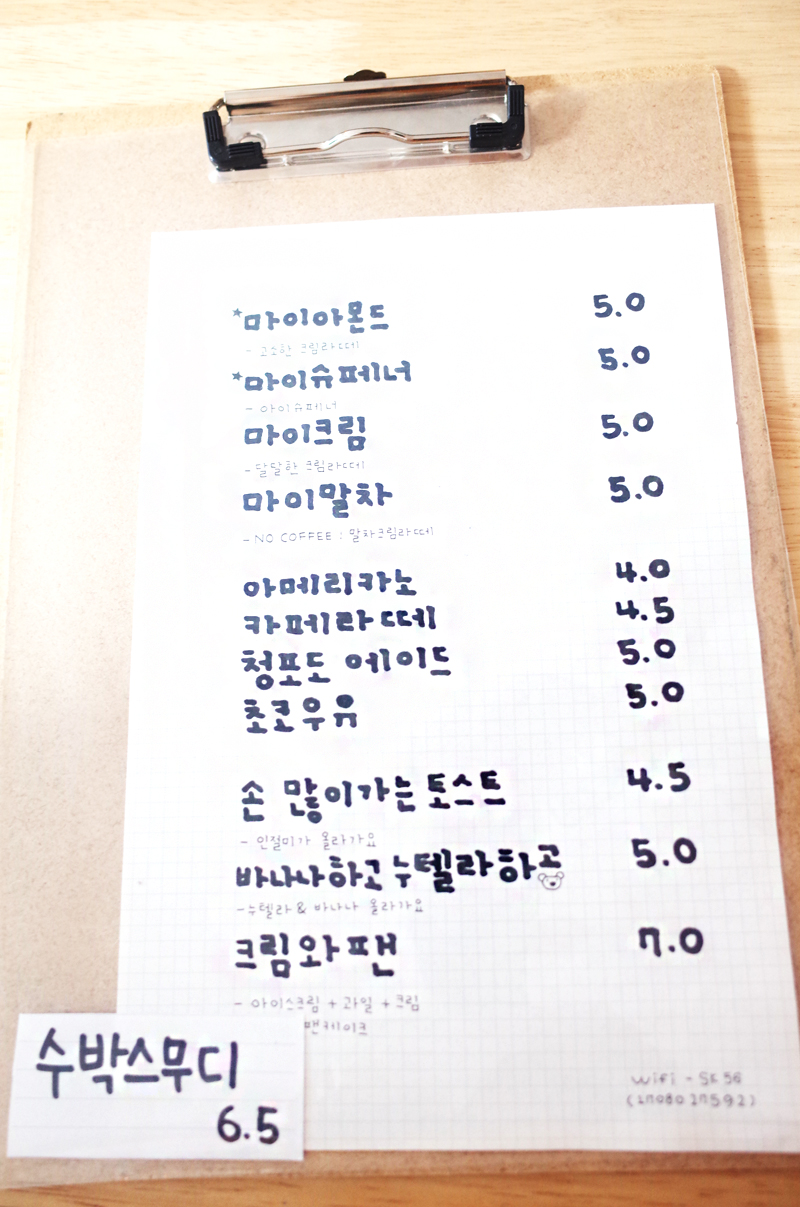 *마이아몬드 5.0
- 고소한 크림라떼
*마이슈페너 5.0
- 아이슈페너
마이크림 5.0
- 달달한 크림라떼
마이말차 5.0
- NO COFFEE : 말차크림라떼
아메리카노 4.0
카페라떼 4.5
청포도 에이드 5.0
초코우유 5.0
손 많이가는 토스트 4.5
- 인절미가 올라가요
바나나하고 누텔라하고 5.0
- 누텔라 & 바나나 올라가요
크림와팬 7.0
- 아이스크림 + 과일 + 크림
팬케이크
수박스무디
6.5
wifi -